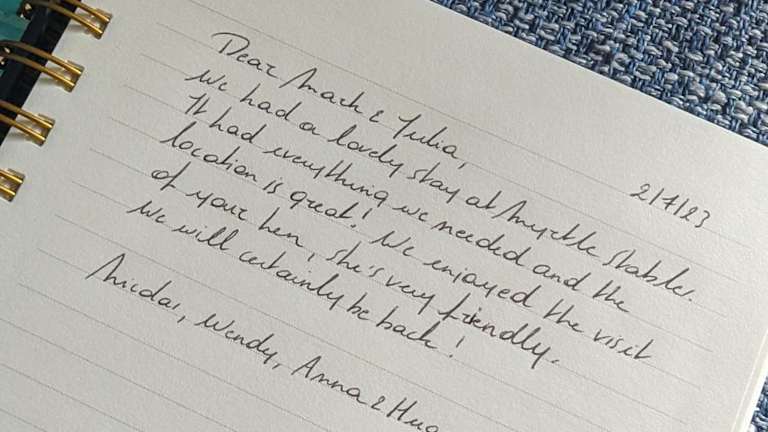 Dear Mark & Julia,
2/7/23
We had a lovely stay at Myrtle stables.
It had everything we needed and the
location is great! We enjoyed the visit
of your hen, she's very friendly.
We will certainly be back!
Nicolas, Wendy, Anna &